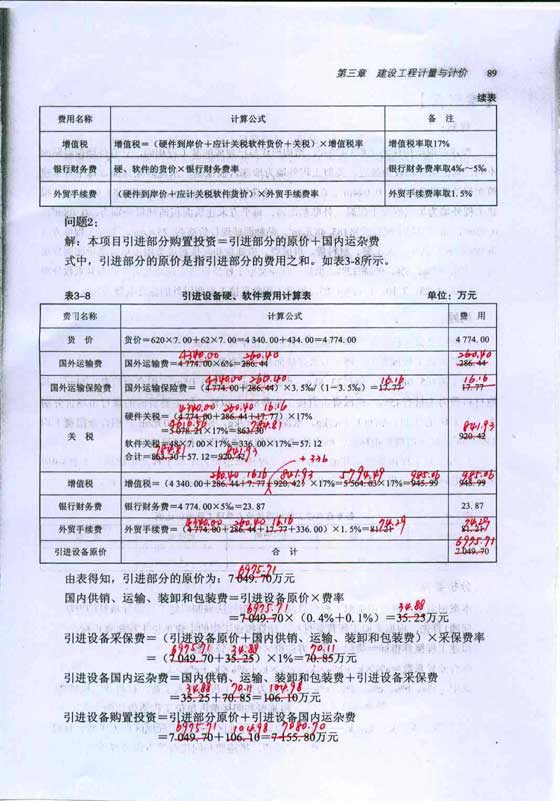 第三章 建设工程计量与计价 89
续表
费用名称 计算公式 备 注
增值税 增值税=(硬件到岸价+应计关税软件货价+关税)×增值税率 增值税率取17%
银行财务费 硬、软件的货价×银行财务费率 银行财务费率取4‰~5‰
外贸手续费 (硬件到岸价+应计关税软件货价)×外贸手续费率 外贸手续费率取1.5%
问题2:
解:本项目引进部分购置投资=引进部分的原价+国内运杂费
式中,引进部分的原价是指引进部分的费用之和。如表3-8所示。
表3-8 引进设备硬、软件费用计算表 单位:万元
费用名称 计算公式 费 用
货 价 货价=620×7.00+62×7.00=4 340.00+434.00=4 774.00 4 774.00
4340.00 260.40 260.40
国外运输费 国外运输费=4 774.00×6%=286.44 286.44
4340.00 260.40 16.16 16.16
国外运输保险费 国外运输保险费=(4 774.00+286.44)×3.5‰/(1-3.5‰)=17.77 17.77
4340.00 260.40 16.16
硬件关税=(4 774.00+286.44+17.77)×17%
4616.56 784.81
=5 078.21×17%=863.30
关 税 841.93 920.42
软件关税=48×7.00×17%=336.00×17%=57.12
784.81 841.93
合计=863.30+57.12=920.42
+336
260.40 16.16 841.93 5794.49 985.06 985.06
增值税 增值税=(4 340.00+286.44+7.77+920.42)×17%=5 564.63×17%=945.99 945.99
银行财务费 银行财务费=4 774.00×5‰=23.87 23.87
4340.00 260.40 16.16 74.29 74.29
外贸手续费 外贸手续费=(4 774.00+286.44+17.77+336.00)×1.5%=81.21 81.21
6975.71
引进设备原价 合 计 7 049.70
6975.71
由表得知,引进部分的原价为:7 049.70万元
国内供销、运输、装卸和包装费=引进设备原价×费率
6975.71 34.88
=7 049.70×(0.4%+0.1%)=35.25万元
引进设备采保费=(引进设备原价+国内供销、运输、装卸和包装费)×采保费率
6975.71 34.88 70.11
=(7 049.70+35.25)×1%=70.85万元
引进设备国内运杂费=国内供销、运输、装卸和包装费+引进设备采保费
34.88 70.11 104.98
=35.25+70.85=106.10万元
引进设备购置投资=引进部分原价+引进设备国内运杂费
6975.71 104.98 7080.70
=7 049.70+106.10=7 155.80万元